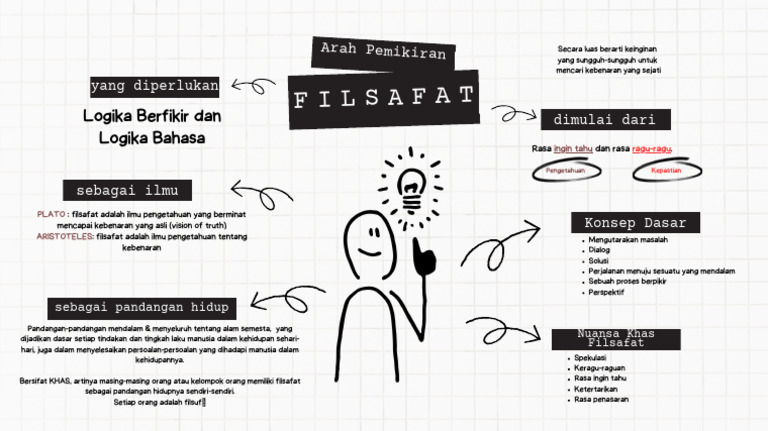 Arah Pemikiran
FILSAFAT
Secara luas berarti keinginan
yang sungguh-sungguh untuk
mencari kebenaran yang sejati
yang diperlukan
Logika Berfikir dan
Logika Bahasa
dimulai dari
Rasa ingin tahu dan rasa ragu-ragu.
Pengetahuan
Kepastian
sebagai ilmu
PLATO : filsafat adalah ilmu pengetahuan yang berminat
mencapai kebenaran yang asli (vision of truth)
ARISTOTELES: filsafat adalah ilmu pengetahuan tentang
kebenaran
Konsep Dasar
Mengutarakan masalah
Dialog
Solusi
Perjalanan menuju sesuatu yang mendalam
Sebuah proses berpikir
Perspektif
sebagai pandangan hidup
Pandangan-pandangan mendalam & menyeluruh tentang alam semesta, yang
dijadikan dasar setiap tindakan dan tingkah laku manusia dalam kehidupan sehari-
hari, juga dalam menyelesaikan persoalan-persoalan yang dihadapi manusia dalam
kehidupannya.
Bersifat KHAS, artinya masing-masing orang atau kelompok orang memiliki filsafat
sebagai pandangan hidupnya sendiri-sendiri.
Setiap orang adalah filsuf
Nuansa Khas
Filsafat
Spekulasi
Keragu-raguan
Rasa ingin tahu
Ketertarikan
Rasa penasaran